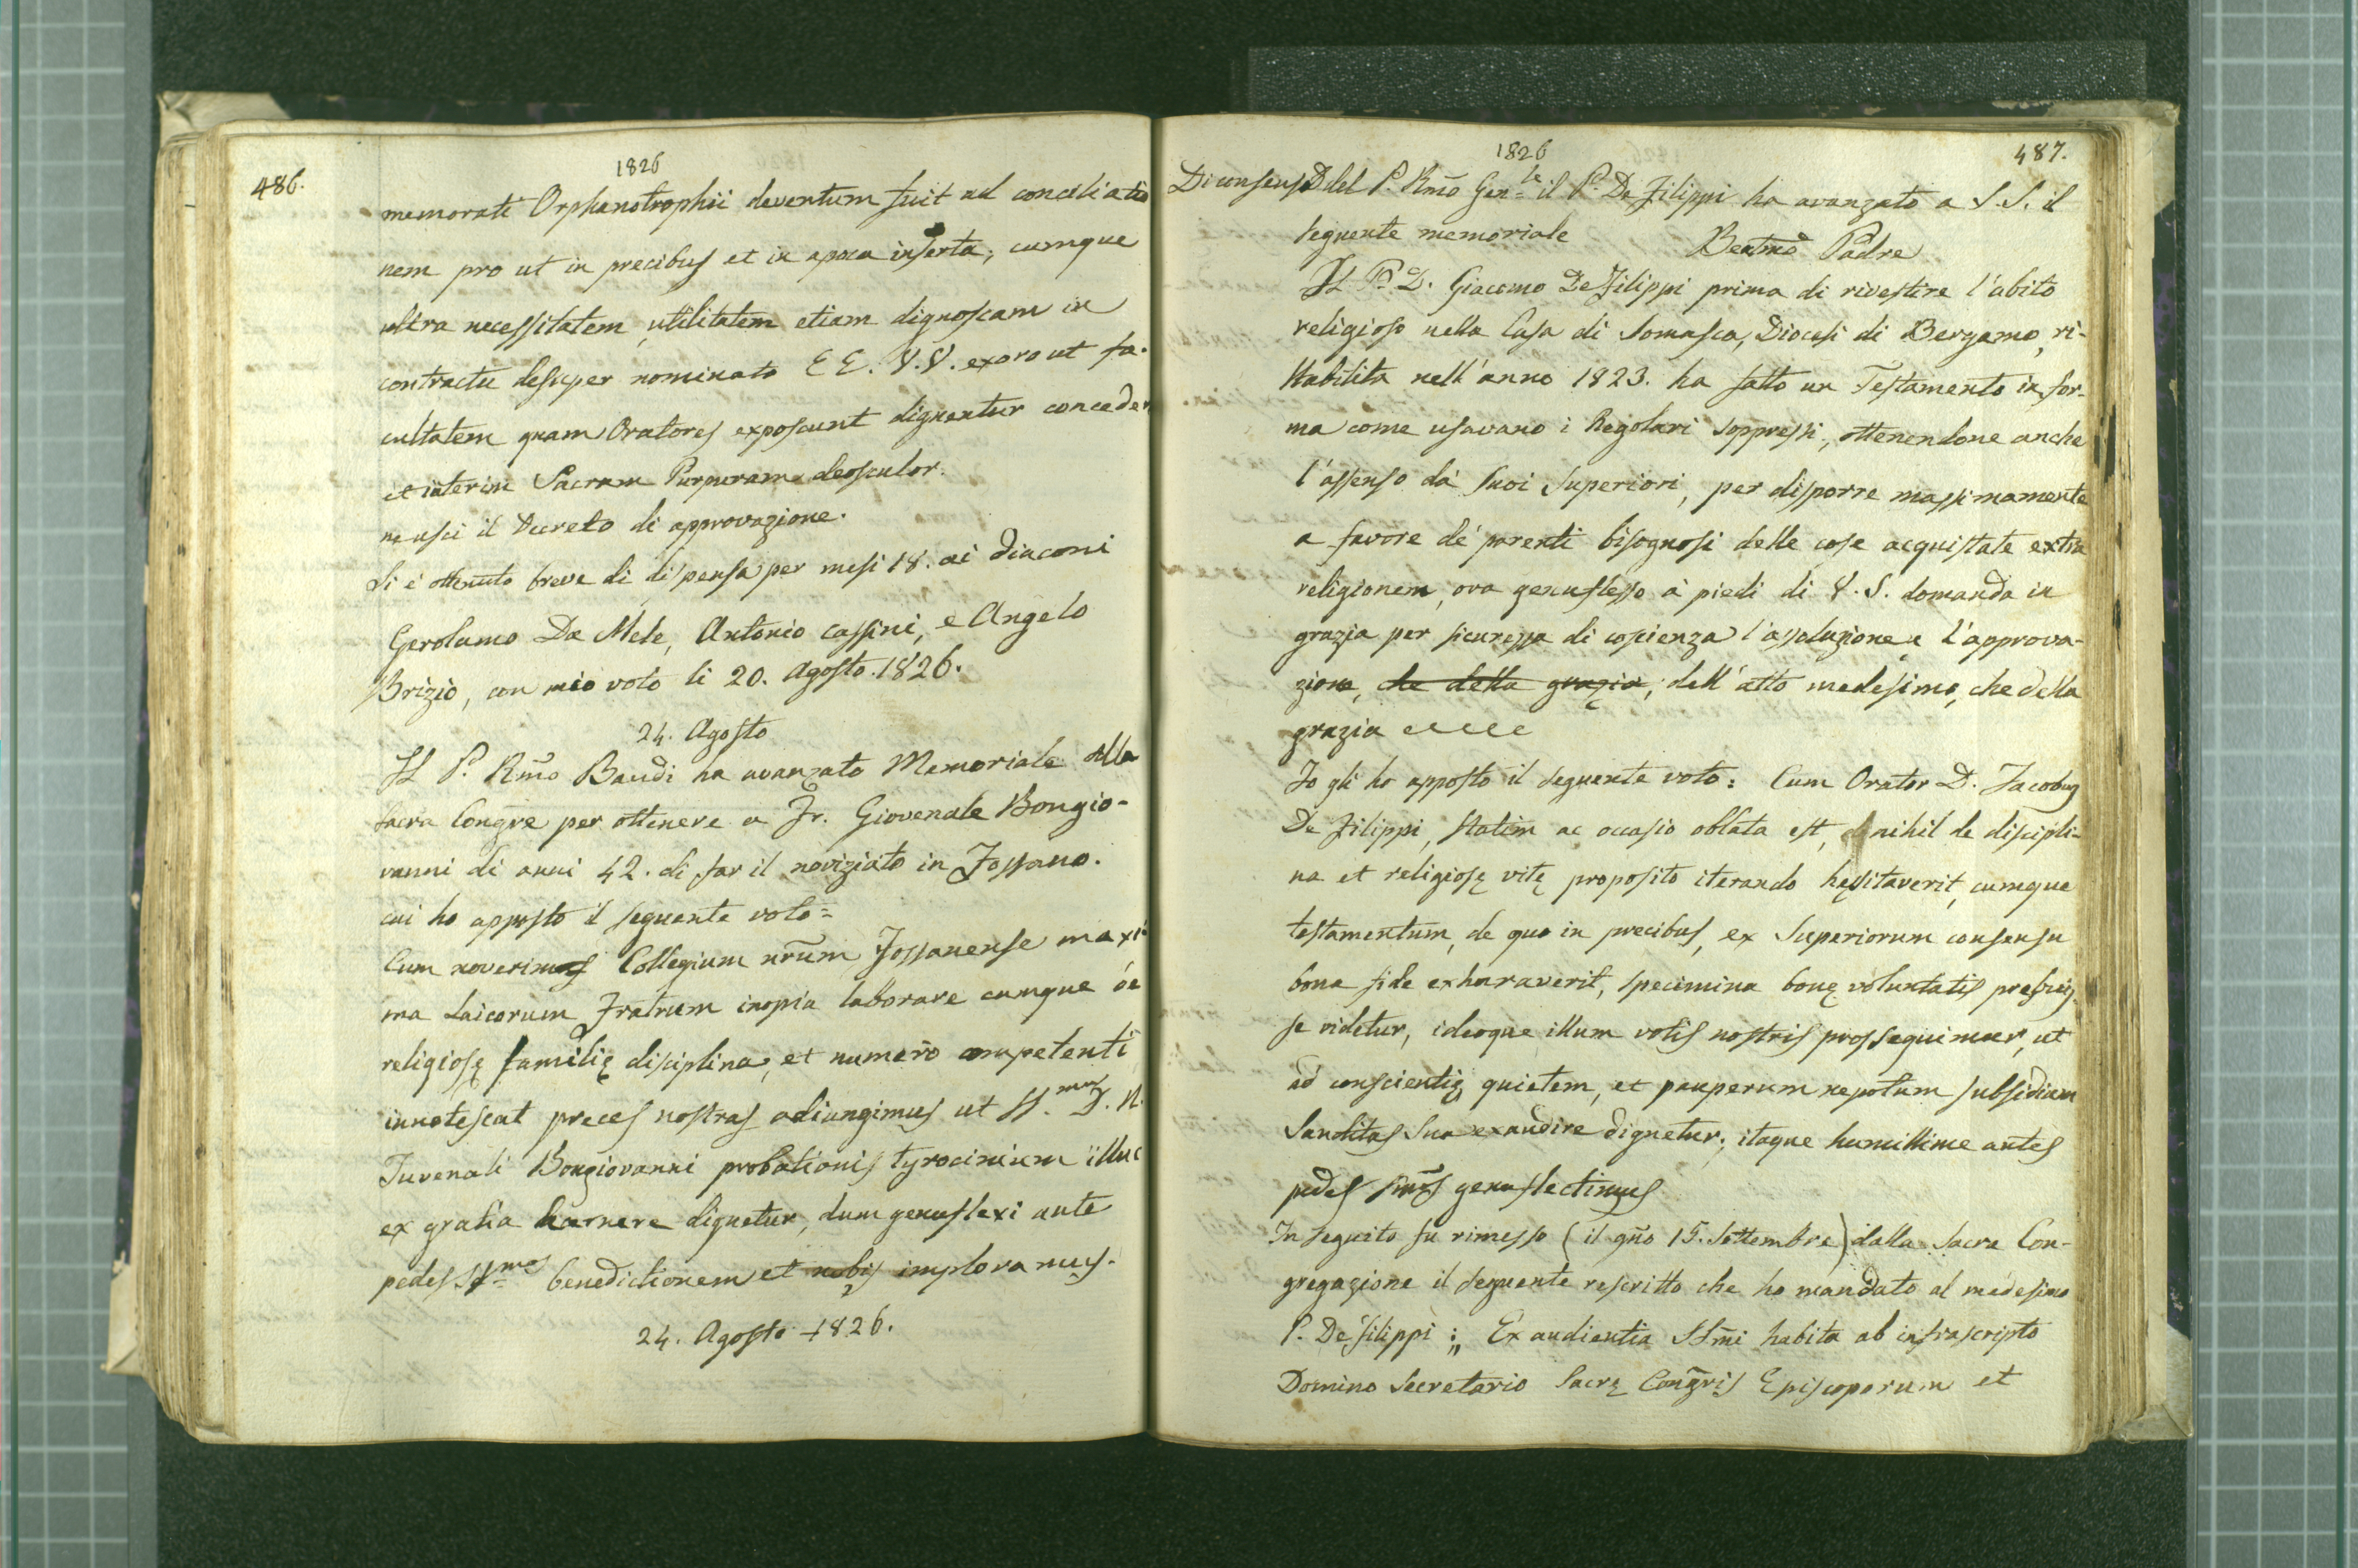 486.
1826
memorati Orphanotrophii deventum fuit ad conciliatio
nem pro ut in precibus et in apoca inserta, cumque
ultra necessitatem, utilitatem etiam dignoscam in
contractu desuper nominato EE. V.V. exoro ut fa-
cultatem quam Oratores exposcunt dignentur conceder
et interim Sacram Purpuram deosculor.
ne uscì il Decreto di approvazione.
Si è ottenuto breve di dispensa per mesi 18. ai diaconi
Gerolamo Da Mele, Antonio Cassini, e Angelo
Brizio, con mio voto li 20. Agosto. 1826.
24. Agosto
Il P. Rmo Baudi ha avanzato Memoriale alla
sacra Congre per ottenere a Fr. Giovenale Bongio-
vanni di anni 42. di far il noviziato in Fossano.
cui ho apposto il seguente voto=
Cum noverimus Collegium nrum Fossanense maxi
ma Laicorum Fratrum inopia laborare cumque de
religiosę familię disciplina, et numero competenti
innotescat preces nostras adiungimus ut SS.mus D. N.
Juvenali Bongiovanni probationis tyrocinium illuc
ex gratia
dignetur, dum genuflexi ante
pedes SS.mos benedictionem et nobis imploramus.
24. Agosto 1826.
1826
487.
Di consenso del P. Rmo Gen=le il P. De Filippi ha avanzato a S.S. il
seguente memoriale Beatmo Padre
Il P. D. Giacomo De Filippi prima di rivestire l'abito
religioso nella Casa di Somasca, Diocesi di Bergamo, ri-
stabilita nell'anno 1823. ha fatto un Testamento in for-
ma come usavano i Regolari soppressi, ottenendone anche
l'assenso dà suoi Superiori, per disporre massimamente
a favore dè parenti bisognosi delle cose acquistate extra
religionem, ora genuflesso à piedi di V.S. domanda in
grazia per sicurezza di coscienza l'assoluzione e l'approva-
zione, che della grazia, dell'atto medesimo, che della
grazia
Io gli ho apposto il seguente voto: Cum Orator D. Jacobus
De Filippi, statim ac occasio oblata est, nihil de discipli-
na et religiosę vitę proposito iterando hęsitaverit, cumque
testamentum, de quo in precibus, ex Superiorum consensu
bona fide exharaverit, specimina bonę voluntatis prębuis
se videtur, ideoque illum votis nostris prossequimur, ut
ad conscientię quietem, et pauperum nepotum subsidium
Sanctitas Sua exaudire dignetur; itaque humillime antes
pedes genuflectimus
In seguito fu rimesso (il gno 15. Settembre) dalla Sacra Con-
gregazione il seguente rescritto che ho mandato al medesimo
P. De Filippi: „ Ex audientia SSmi habita ab infrascripto
Domino Secretario Sacrę Congris Episcoporum et